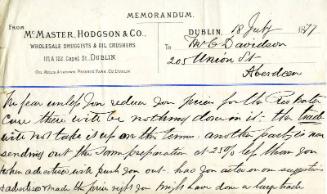 MEMORANDUM.
FROM
McMASTER, HODGSON & Co.,
WHOLESALE DRUGGISTS & OIL CRUSHERS
121 & 122, Capel St. DUBLIN
OIL MILLS & KNOWN PAYNE'S FARM, CO. DUBLIN
DUBLIN, 18 July 1877
To Mr C Davidson
205 Union St
Aberdeen
We fear unless you reduce your price for the
Cure there will be nothing done in it. the trade
will not take it up on the terms. another party is now
sending out the same preparation at 25% less than you
when advertised will push you out. has you acted on our suggestion
& advertised made the price right you might have done a large trade